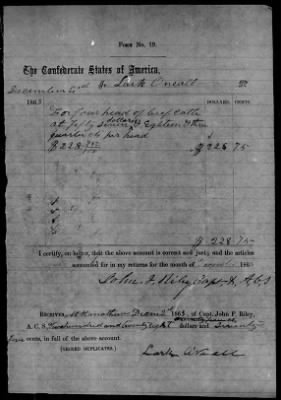 Form No. 19.
The Confederate States of America,
December 2d To Lark Oneall Dr
1863 DOLLARS. CENTS.
For four head of beef cattle
at Fifty Seven dollars & Eighteen & three
quarter cts per head $
$228 75/100 $ 228 75
$ 228.75
I certify, on honor, that the above account is correct and just; and the articles
accounted for in my returns for the month of
John J. Riley Capt & A.C.S
Received, at Decem 2d 1863, of Capt. John F. Riley,
A. C. S. Two hundred and twenty eight dollars and Seventy
five cents, in full of the above account.
(SIGNED DUPLICATES.)
Lark Oneall